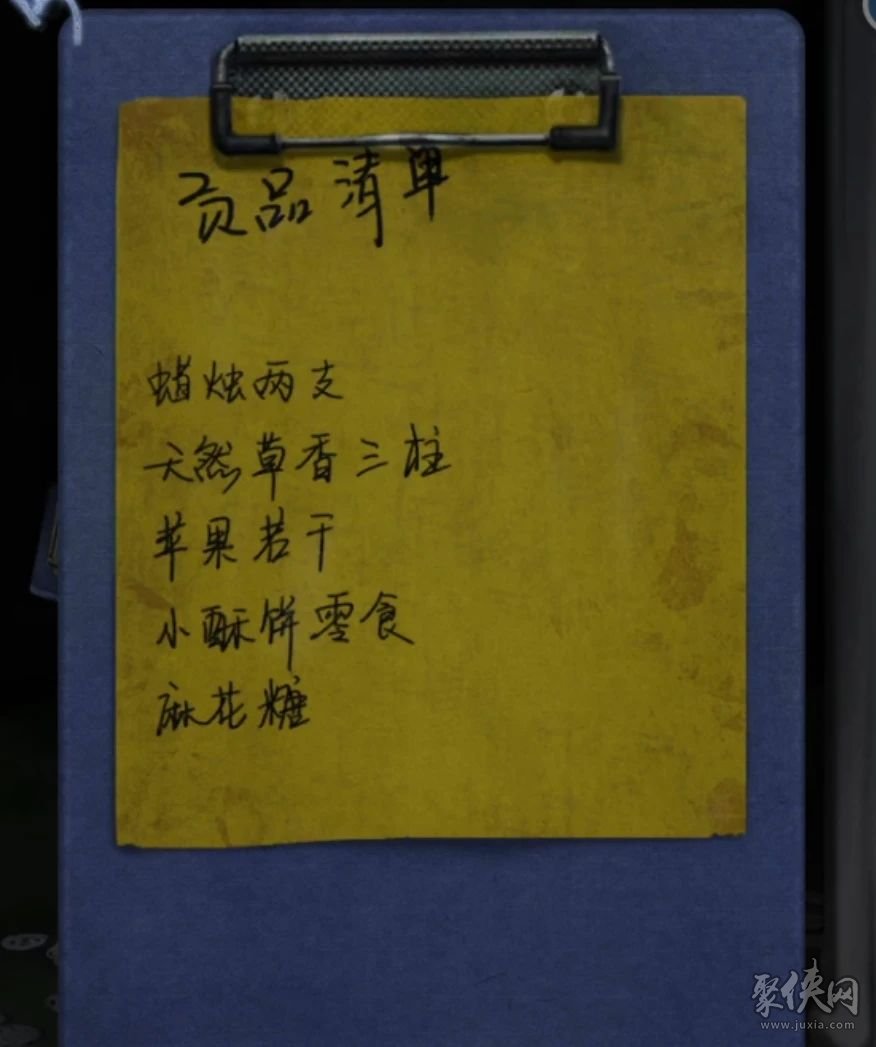 贡品清单
蜡烛两支
天然草香三柱
苹果若干
小酥饼零食
麻花糖
聚侠网
www.juxia.com